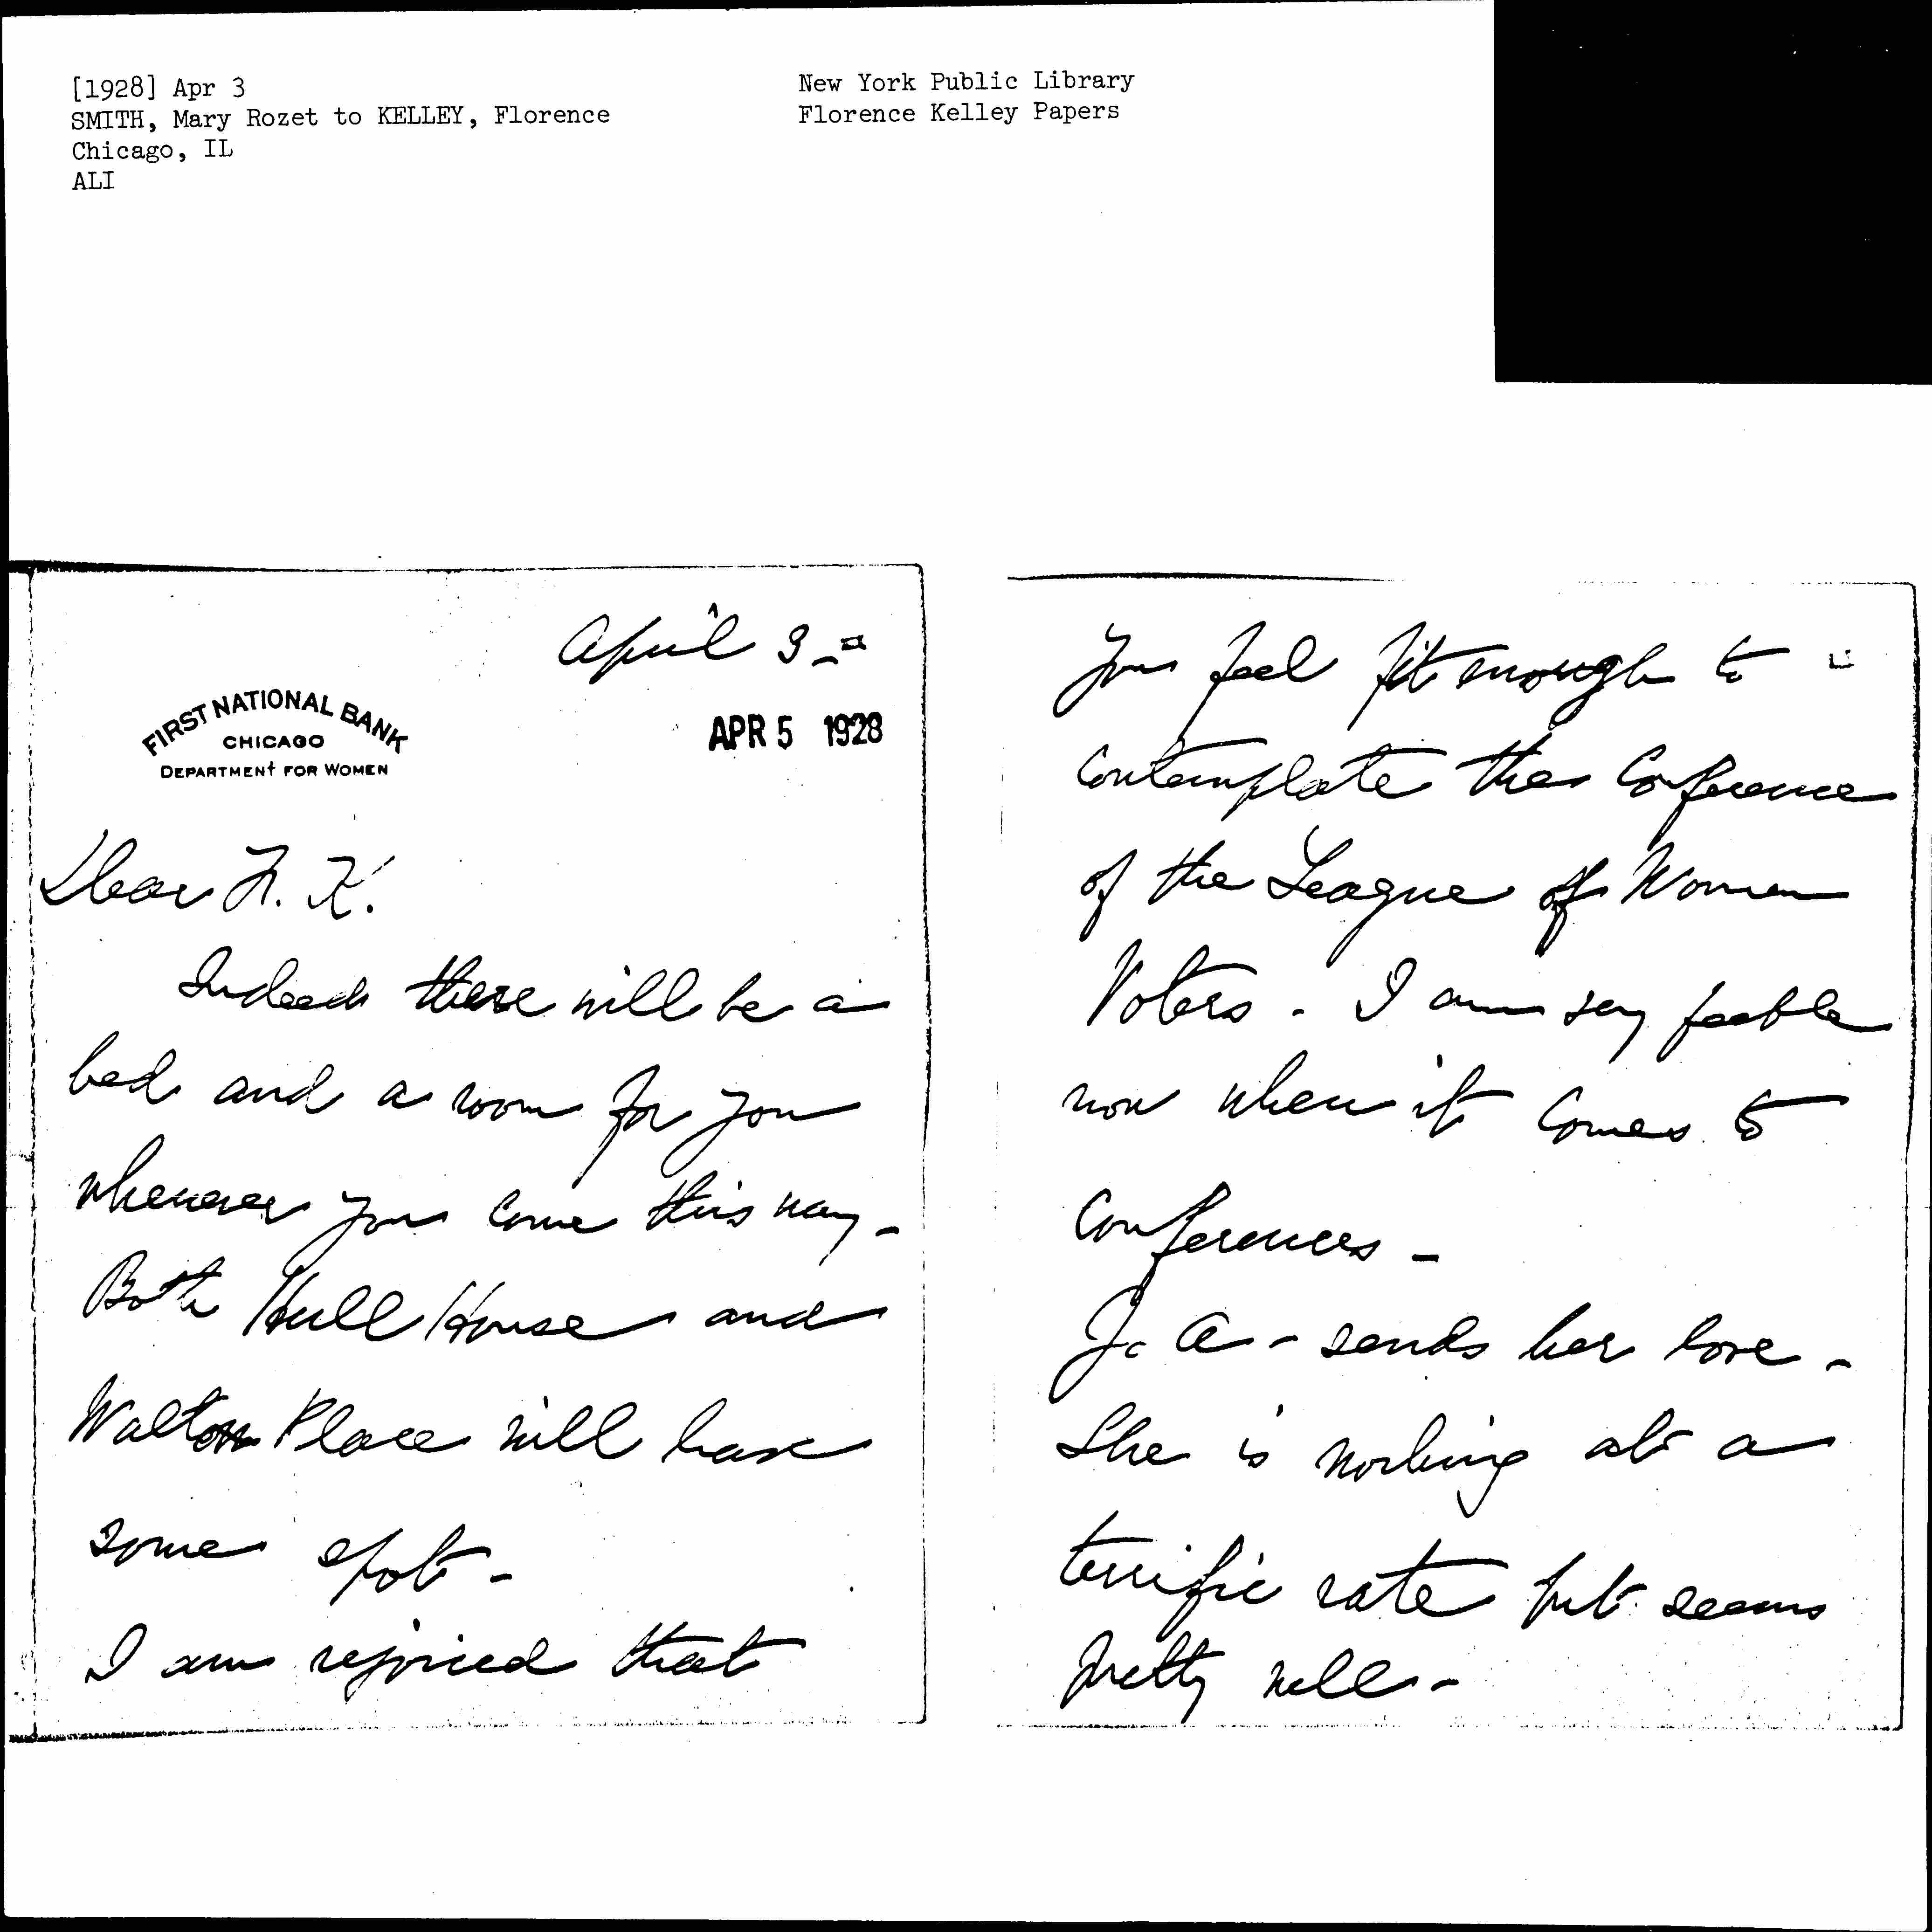 [1928] Apr 3
SMITH, Mary Rozet to KELLEY, Florence
Chicago, IL
ALI
New York Public Library
Florence Kelley Papers
April 3
FIRST NATIONAL BANK
CHICAGO
DEPARTMENT FOR WOMEN
APR 5 1928
Dear F. K.
Indeed there will be a
bed and a room for you
whenever you come this way -
Both Hull House and
Walton Place will have
some spot -
I am rejoiced that
you feel fit enough to
contemplate the Conference
of the League of Women
Voters - I am very feeble
now when it comes to
conferences -
J. A - sends her love -
She is working at a
terrific rate but seems
pretty well -